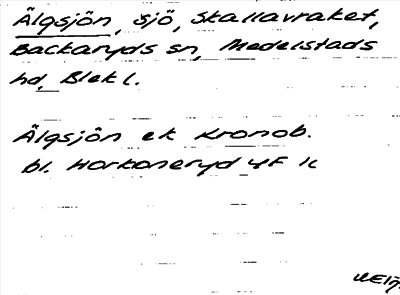 Älgsjön, sjö, Skallavraket,
Backaryds sn, Medelstads
hd, Blek l.
Älgsjön ek Kronob.
bl. Horkoneryd 4F 1c